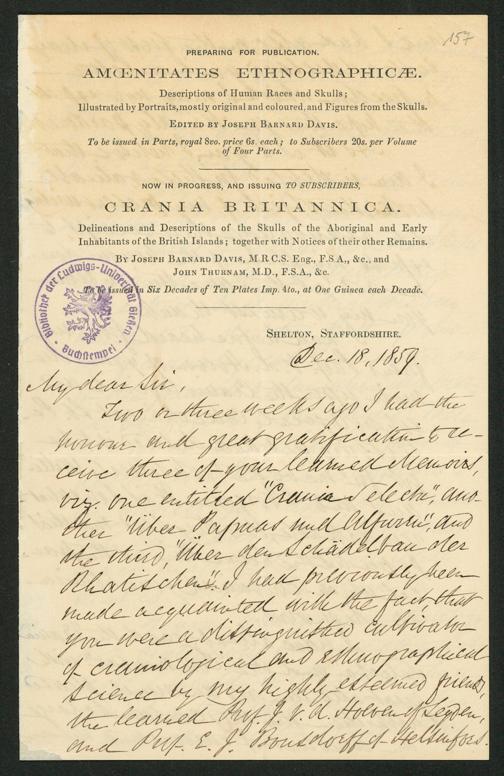 157
PREPARING FOR PUBLICATION.
AMŒNITATES ETHNOGRAPHICÆ.
Descriptions of Human Races and Skulls;
Illustrated by Portraits, mostly original and coloured, and Figures from the Skulls.
EDITED BY JOSEPH BARNARD DAVIS.
To be issued in Parts, royal 8vo. price 6s. each; to Subscribers 20s. per Volume
of Four Parts.
NOW IN PROGRESS, AND ISSUING TO SUBSCRIBERS,
CRANIA BRITANNICA.
Delineations and Descriptions of the Skulls of the Aboriginal and Early
Inhabitants of the British Islands; together with Notices of their other Remains.
BY JOSEPH BARNARD DAVIS, M.R.C.S. Eng., F.S.A., &c., and
JOHN THURNAM, M.D., F.S.A., &c.
To be issued in Six Decades of Ten Plates Imp. 4to., at One Guinea each Decade.
Bibliothek der Ludwigs-Universität Gießen
Buchstempel
SHELTON, STAFFORDSHIRE.
Dec. 18, 1859.
My dear Sir,
Two or three weeks ago I had the
honour and great gratification to re-
ceive three of your learned Memoirs,
viz. one entitled "Crania Selecta", ano-
ther "Über Papuas und Alfuren", and
the third, "Über den Schädelbau der
Rhätischen". I had previously been
made acquainted with the fact, that
you were a distinguished cultivator
of craniological and ethnographical
science by my highly esteemed friends,
the learned Prof. J. V. d. Hoeven of Leyden,
and Prof. E. J. Bonsdorff of Helsinfors.